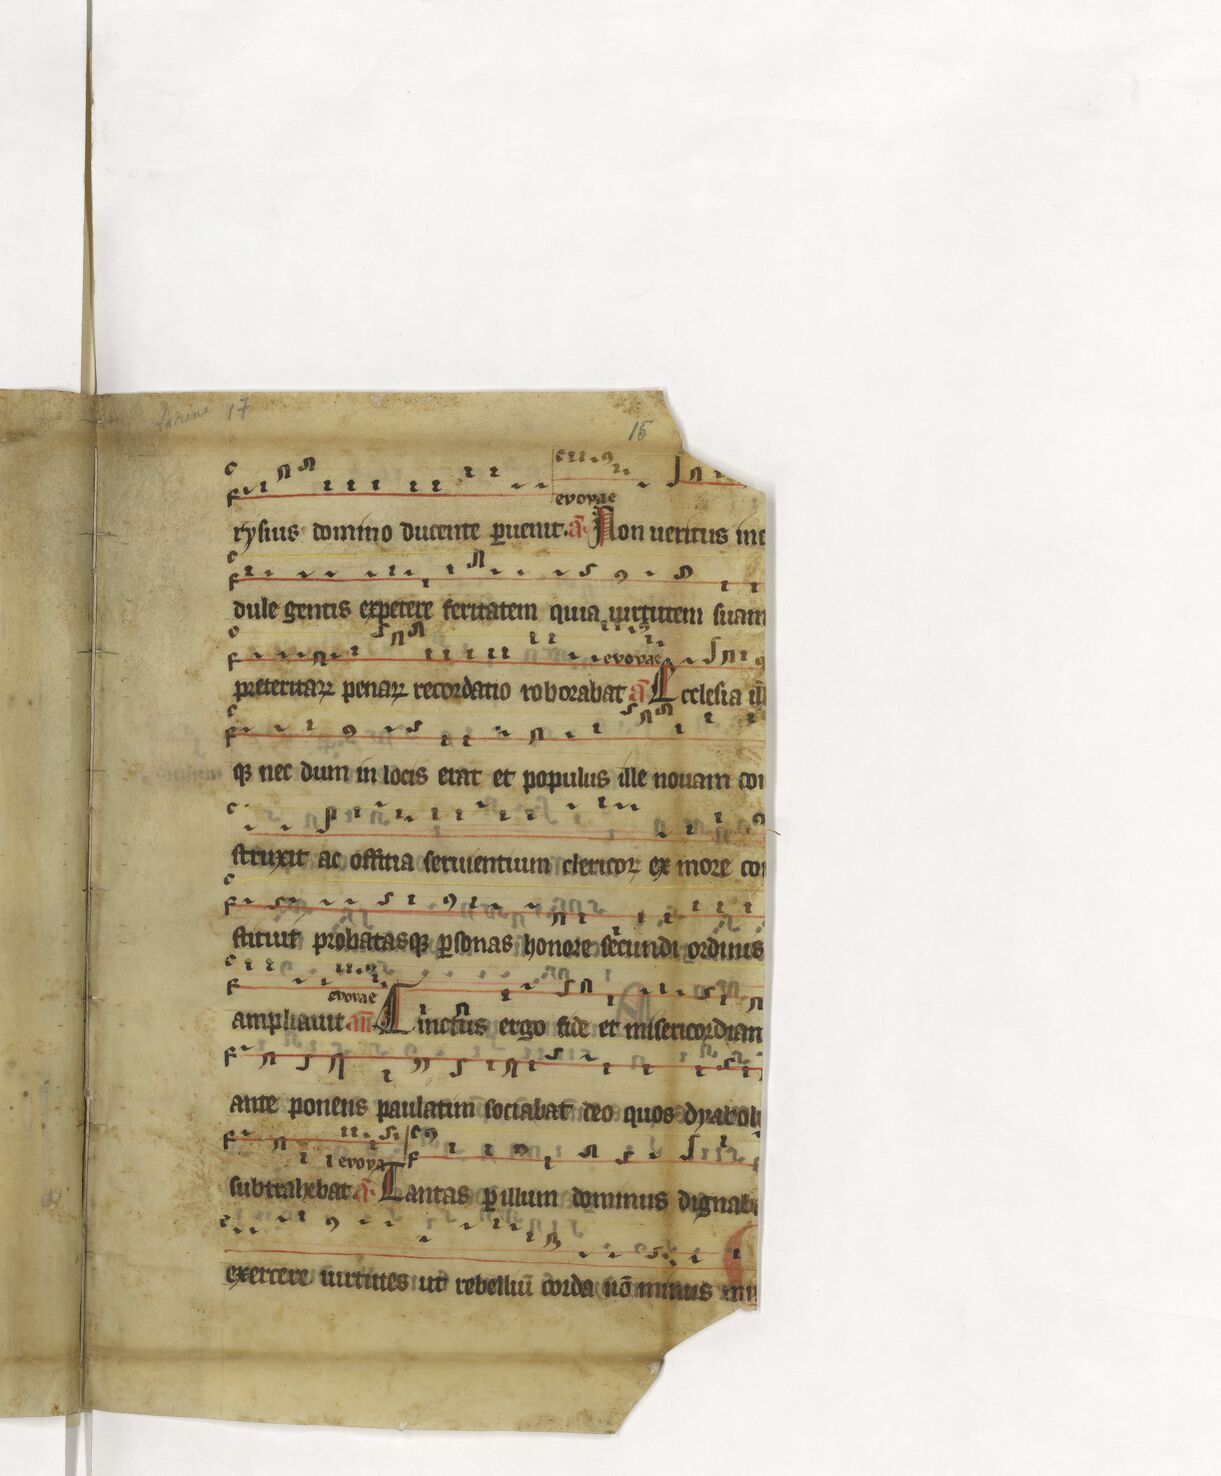 lacune 17
15
evovae
rysius domino ducente ꝑuenit. a̅. Non ueritus inc
dule gentis expetere feritatem quia uirtutem suam
evovae
preteritaꝝ penaꝝ recordatio roborabat a̅ Ecclesia
qꝫ nec dum in locis erat et populus ille nouam con
struxit ac offitia seruientium clericoꝝ ex more con
stituit probatasqꝫ ꝑsonas honore secundi ordinis
evovae
ampliauit an̅ inctus ergo fide et misericordiam
ante ponens paulatim sociabat deo quos dyabol
evova
subtrahebat. a̅. Tantas ꝑ illum dominus dignab
exercere uirtutes ut rebelliu̅ corda no̅ minus